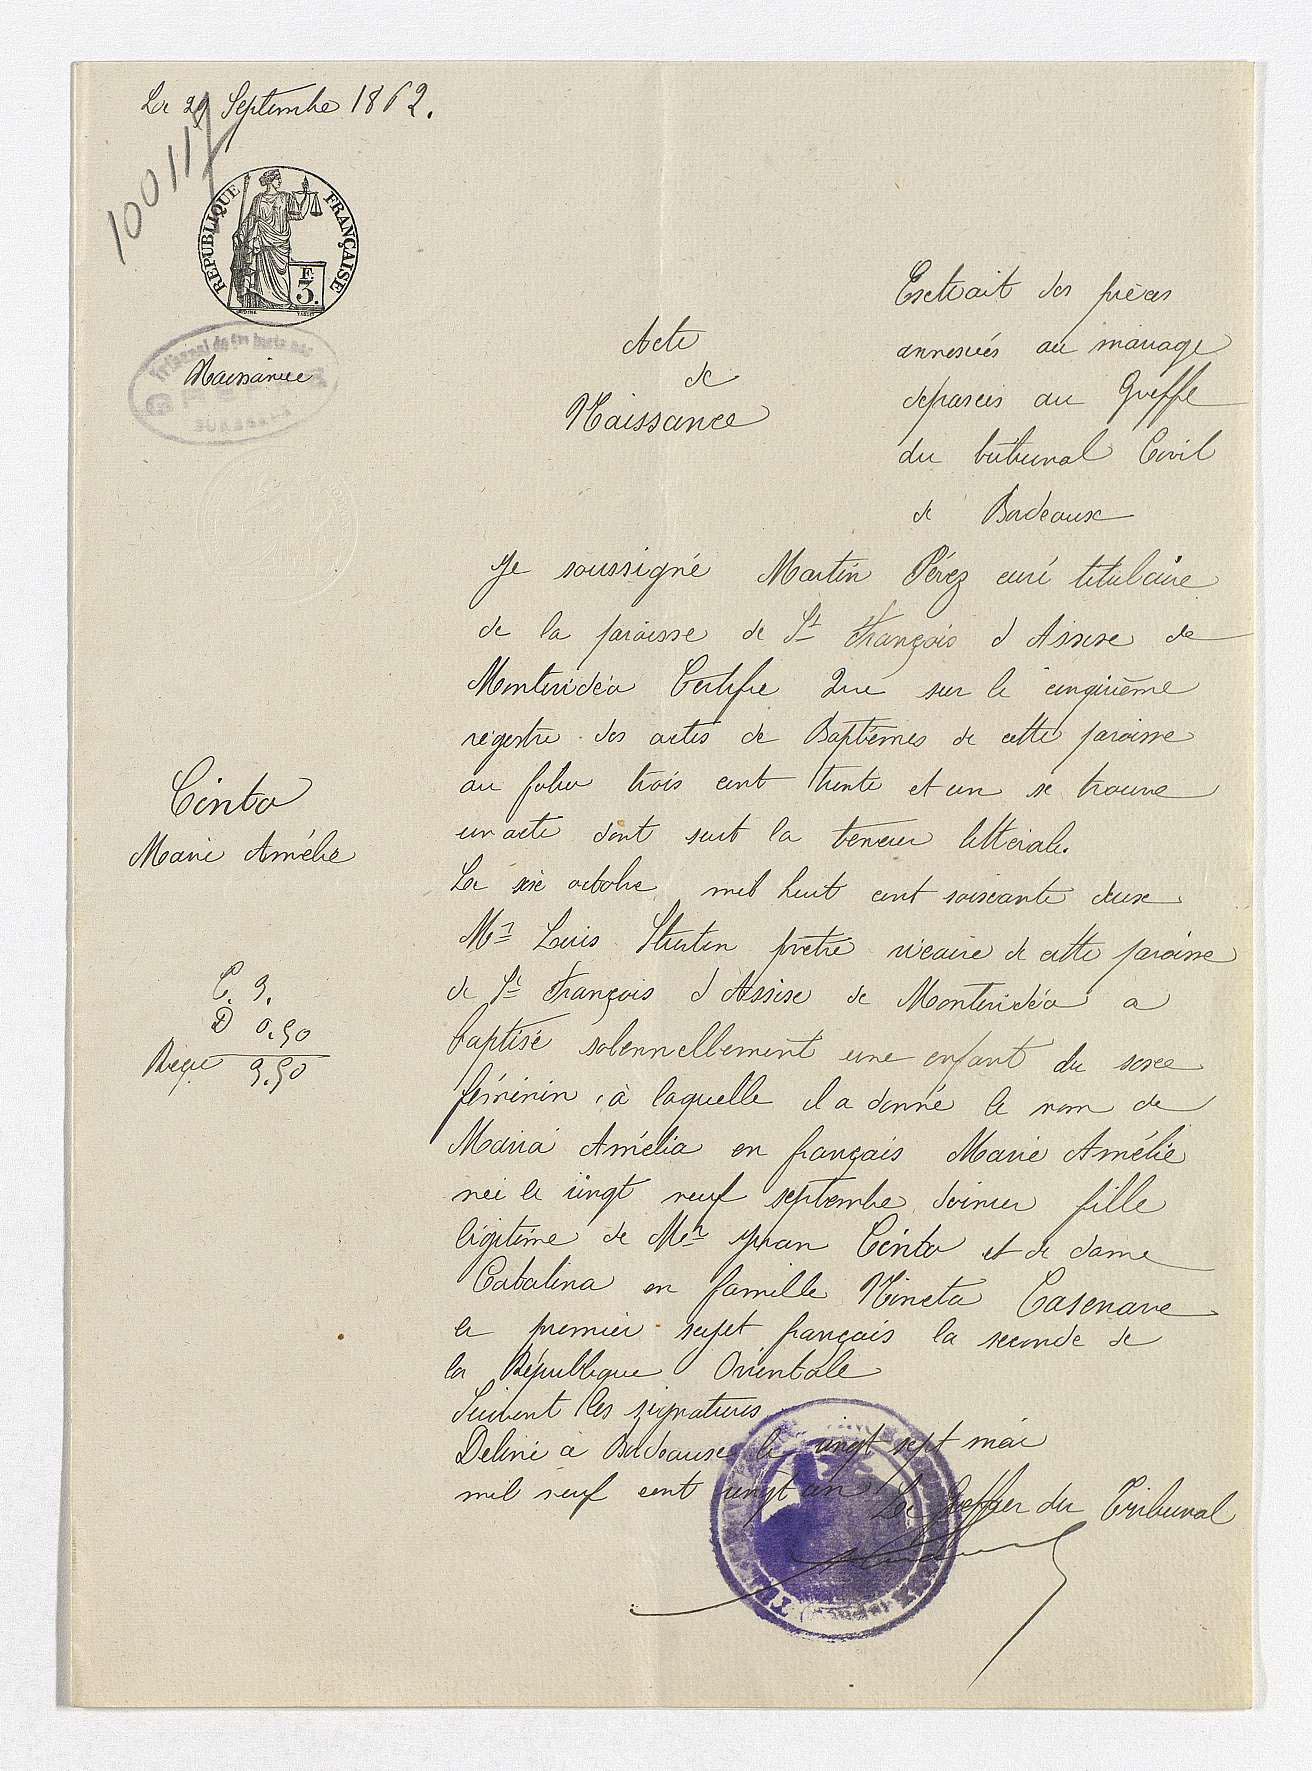 Le 29 Septembre 1862.
100117
RÉPUBLIQUE FRANÇAISE
F.
3.
Naissance
Acte
de
Naissance
Extrait des pièces
annexées au mariage
déposées au Greffe
du tribunal Civil
de Bordeaux
Je soussigné Martin Pérez curé titulaire
de la paroisse de St François d'Assise de
Montevidéo Certifie Que sur le cinquième
régestre des actes de Baptêmes de cette paroisse
au folio trois cent trente et un se trouve
un acte dont suit la teneur littérale.
Le six octobre mil huit cent soixante deux
Mr Luis prêtre vicaire de cette paroisse
de St François d'Assise de Montevidéo a
baptisé solennellement une enfant du sexe
féminin, à laquelle il a donné le nom de
Maria Amélia en français Marie Amélie
née le vingt neuf septembre dernier fille
légitime de Mr Juan Cinto et de dame
Catalina en famille Nineta Casenave
le premier sujet français la seconde de
la République Orientale
Suivent les signatures
Délivré à Bordeaux le vingt-sept mai
mil neuf cent vingt un
Le Greffier du Tribunal
Cinto
Marie Amélie
C. 3.
D 0.50
Reçu 3.50